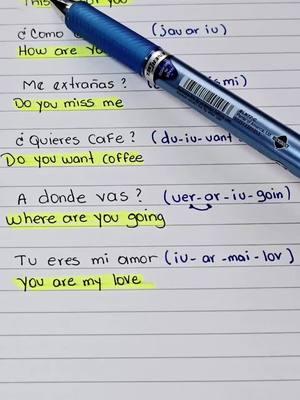 This you
¿Como (jau ar iu)
How are you
Me extrañas? mi)
Do you miss me
¿Quieres Cafe? (du-iu-uant
Do you want coffee
A donde vas? (uer-ar-iu-goin)
where are you going
Tu eres mi amor (iu-ar-mai-lov)
You are my love